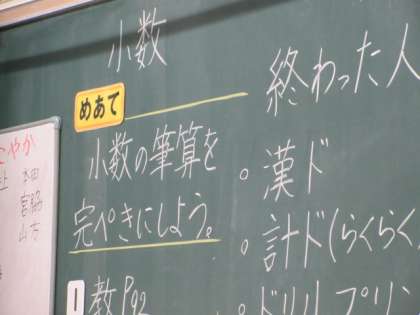 小数
めあて
小数の筆算を
完ぺきにしよう。
1
教P92
終わった人
。漢ド
。計ド(らくらく
。ドリルプリン
こやか
本田
宮脇
山方